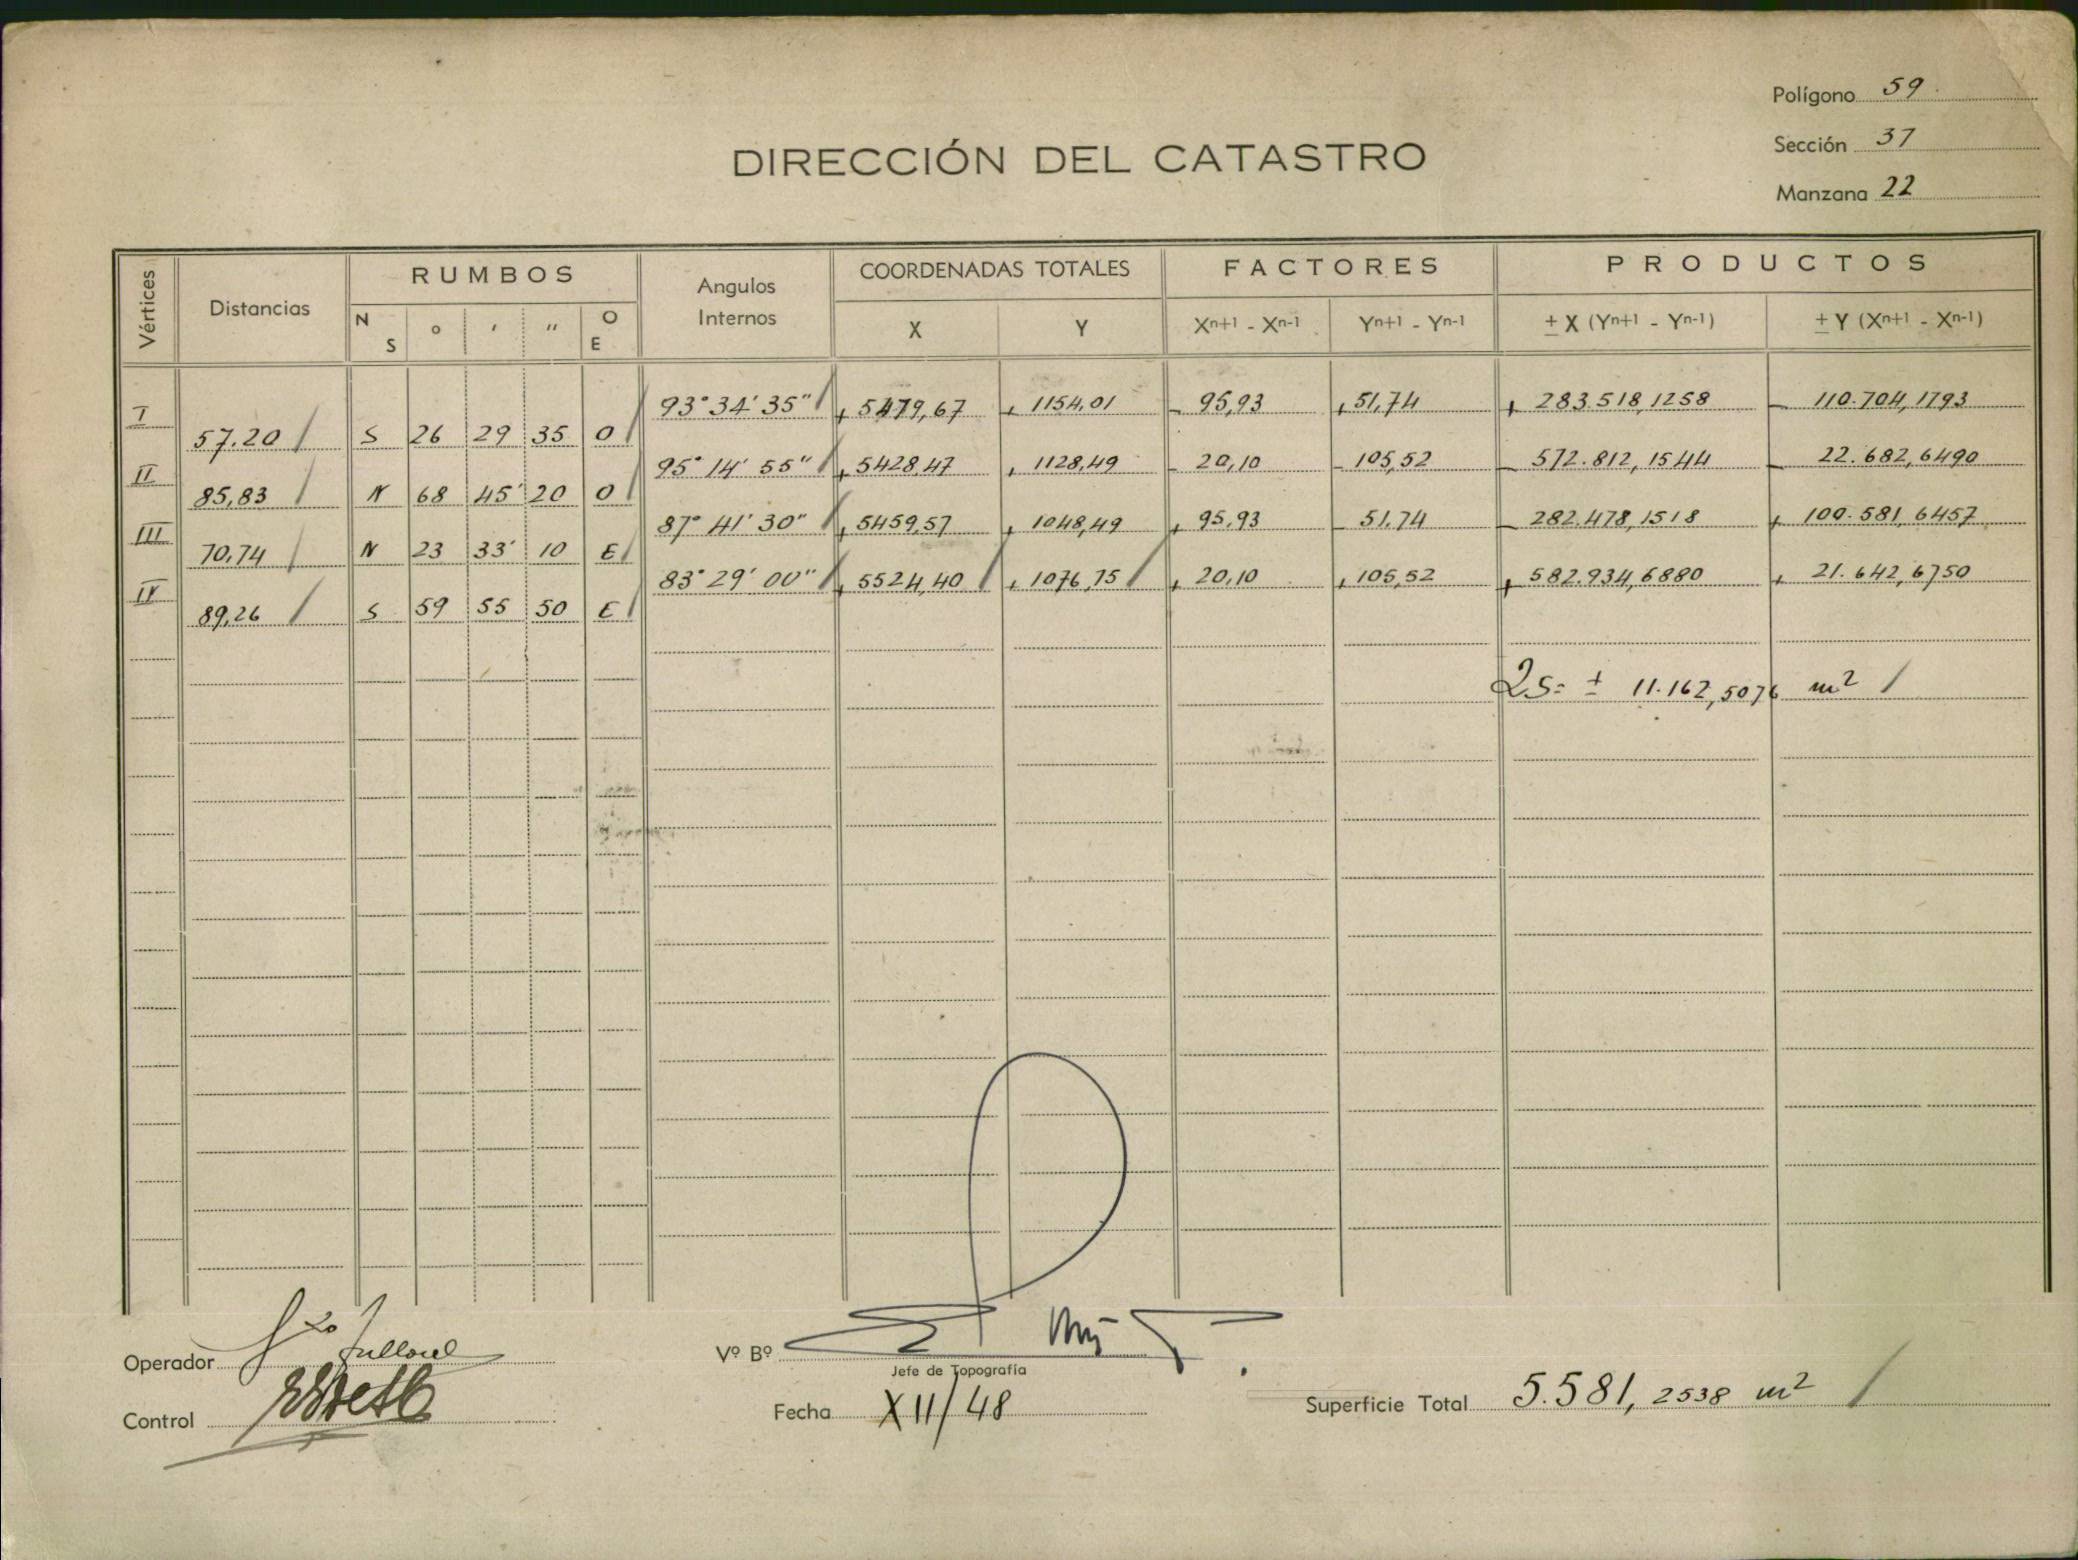 Polígono 59
Sección 37
Manzana 22
DIRECCIÓN DEL CATASTRO
Vértices Distancias RUMBOS Angulos Internos COORDENADAS TOTALES FACTORES PRODUCTOS
N S ° ' " O E X Y Xn+1 - Xn-1 Yn+1 - Yn-1 ± X (Yn+1 - Yn-1) ± Y (Xn+1 - Xn-1)
I 93° 34' 35" + 5479,67 + 1154,01 - 95,93 + 51,74 + 283.518,1258 - 110.704,1793
57.20 S 26 29 35 O
II 95° 14' 55" + 5428,47 + 1128,49 - 20,10 - 105,52 - 572.812,1544 - 22.682,6490
85,83 N 68 45' 20 O
III 87° 41' 30" + 5459,57 + 1048,49 + 95,93 - 51,74 - 282.478,1518 + 100.581,6457
70,74 N 23 33' 10 E
IV 83° 29' 00" + 5524,40 + 1076,75 + 20,10 + 105,52 + 582.934,6880 + 21.642,6750
89,26 S 59 55 50 E
2S= ± 11.162,5076 m²
Operador
Vº Bº
Jefe de Topografía
Control
Fecha XII/48
Superficie Total 5.581,2538 m²